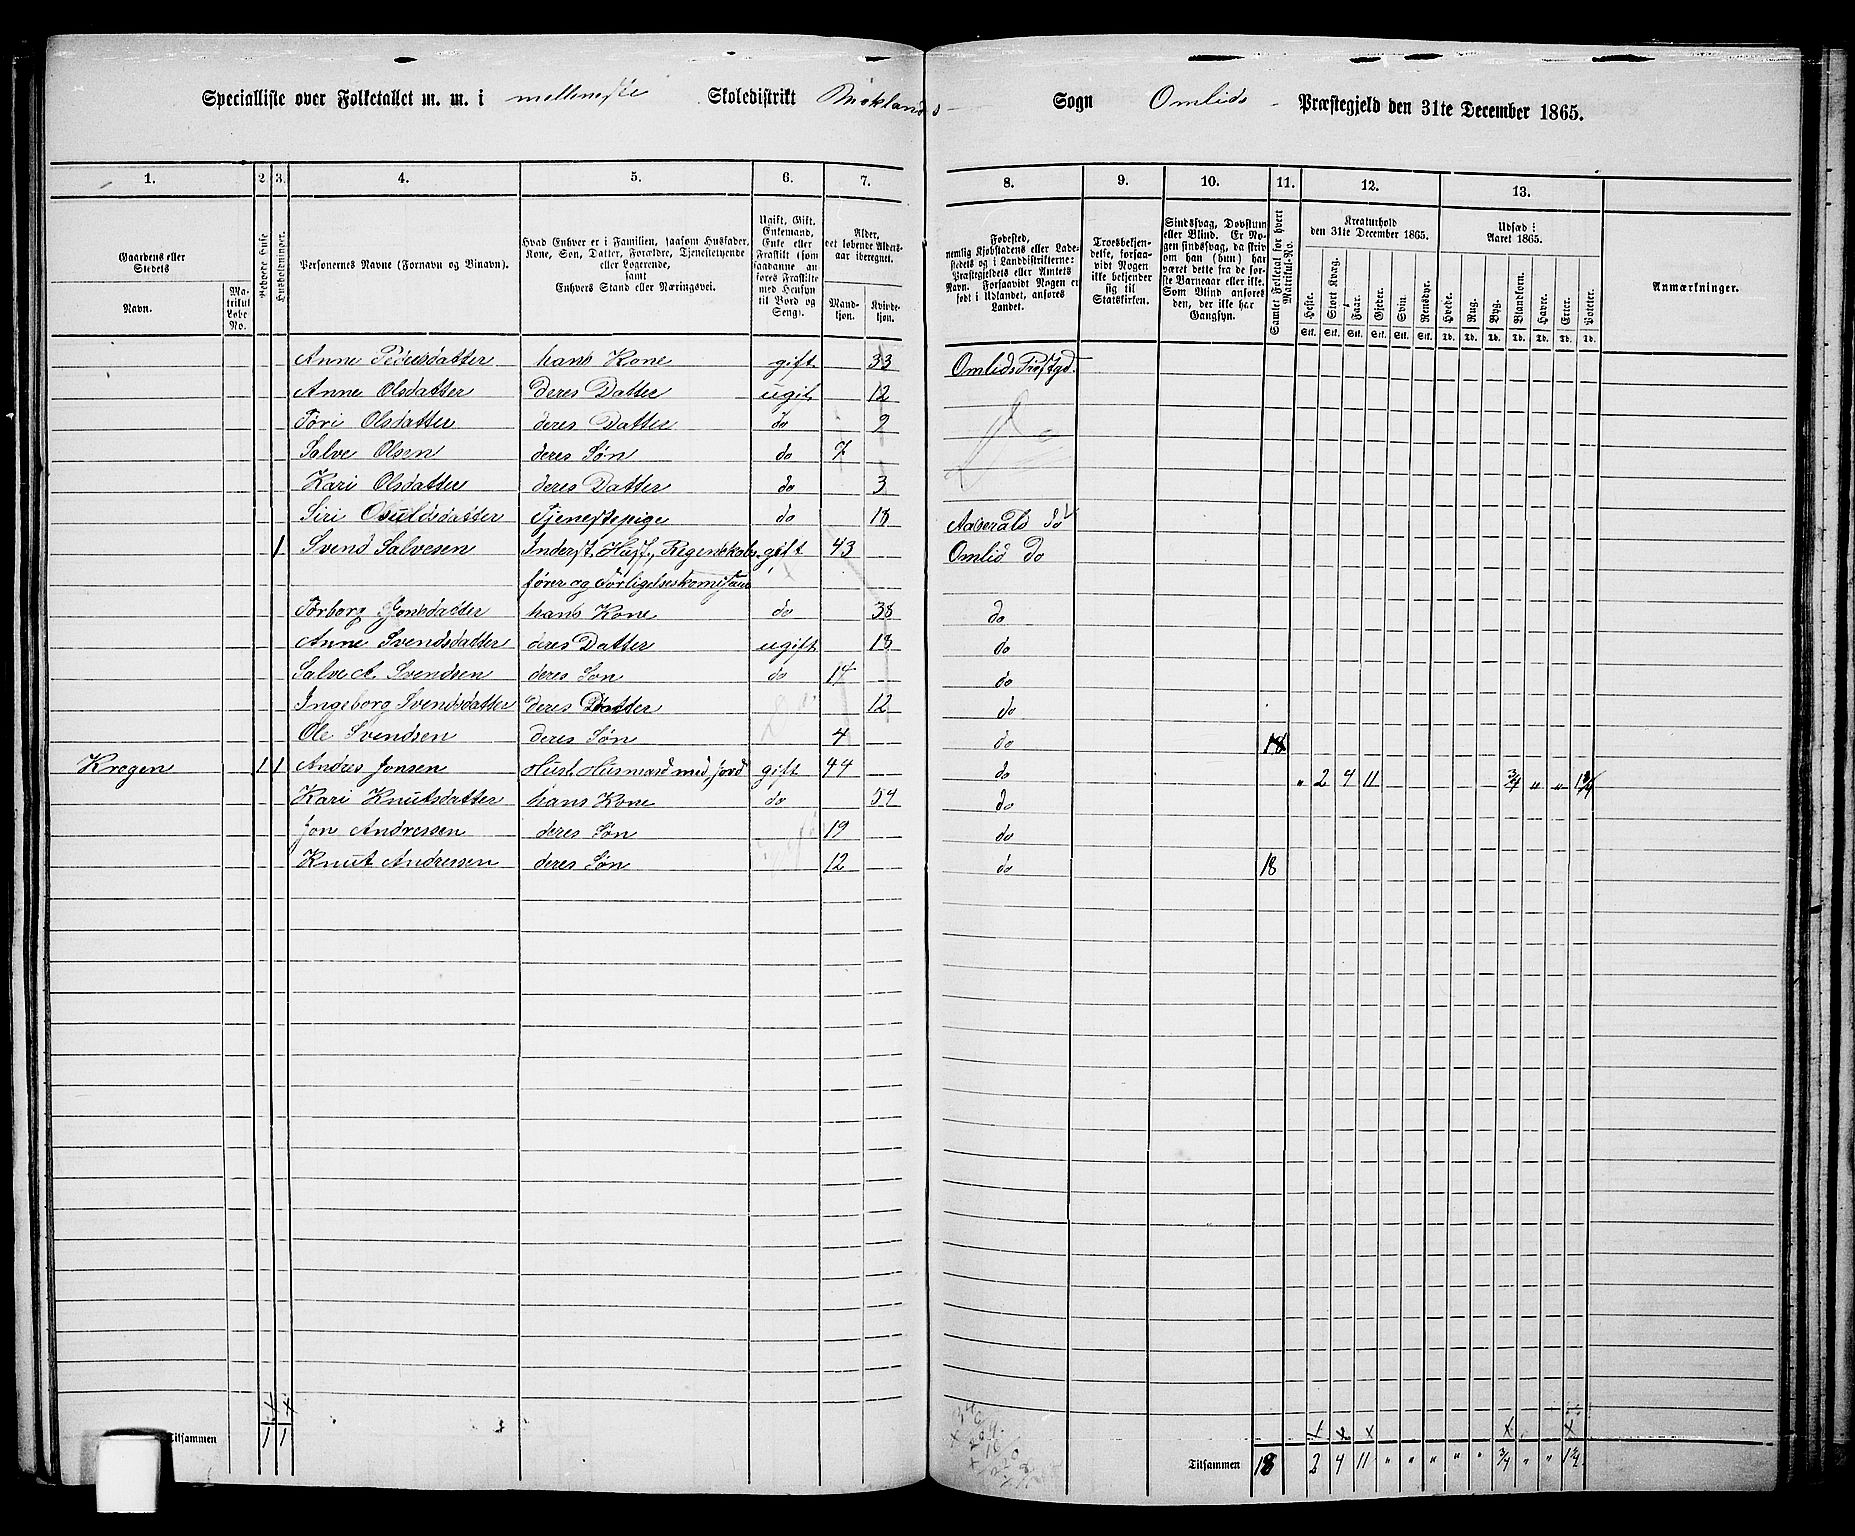 Specialliste over Folketallet m. m. i mellemste Skoledistrikt Møklands Sogn Omlids Præstegjeld den 31te December 1865.
1. 2 3. 4. 5. 6. 7. 8. 9. 10. 11. 12. 13.
Gaardens eller Stedets
Navn.
Matrikul Løbe No.
Bebode Huse
Husholdninger.
Personernes Navne (Fornavn og Vinavn).
Hvad Enhver er i Familien, saasom Husfader, Kone, Søn, Datter, Forældre, Tjenestetyende eller Logerende, samt Enhvers Stand eller Næringsvei.
Ugift, Gift, Enkemand, Enke eller Fraskilt (som saadanne anføres Fraskilte med Hensyn til Bord og Seng).
Alder, det løbende Aldersaar iberegnet.
Mandkjøn.
Kvindekjøn.
Fødested, nemlig Kjøbstadens eller Ladestedets og i Landdistrikterne: Præstegjeldets eller Amtets Navn. Forsaavidt Nogen er født i Udlandet, anføres Landet.
Troesbekjendelse, forsaavidt Nogen ikke bekjender sig til Statskirken.
Sindssvag, Døvstum eller Blind. Er Nogen sindssvag, da skriv om han (hun) har været dette fra de første Barneaar eller ikke. Som Blind anføres den, der ikke har Gangsyn.
Samlet Folketal for hvert Matrikul-No.
Kreaturhold den 31te December 1865.
Heste. Stort Kvæg. Faar. Gjeder. Svin. Rensdyr.
Stk. Stk. Stk. Stk. Stk. Stk.
Udsæd i Aaret 1865.
Hvede. Rug. Byg. Blandkorn. Havre. Erter. Poteter.
Td. Td. Td. Td. Td. Td. Td.
Anmærkninger.
Anne Pedersdatter hans Kone gift 33 Omlids Præstgd.
Anne Olsdatter deres Datter ugift 12
Tøri Olsdatter deres Datter do 9
Salve Olsen deres Søn do 7
Kari Olsdatter deres Datter do 3
Siri Osuldsdatter Tjenestepige do 18 Aaserals do
1 Svend Salvesen Inderst, Husf., Regnskabs- gift 43 Omlid do
fører og Forligelseskomissair
Torborg Jonsdatter hans Kone do 38 do
Anne Svendsdatter deres Datter ugift 18 do
Salve A. Svendsen deres Søn do 14 do
Ingeborg Svendsdatter deres Datter 12 do
Ole Svendsen deres Søn 4 do 18
Kragen 1 1 Andres Jonsen Husf. Husmand med Jord gift 44 do " 2 4 11 3/4 " " 1 3/4
Kari Knutsdatter hans Kone do 54 do
Jon Andressen deres Søn 19 do
Knut Andressen deres Søn 12 do 18
Tilsammen 1 1 Tilsammen 18 2 4 11 " " " " " 3/4 " "